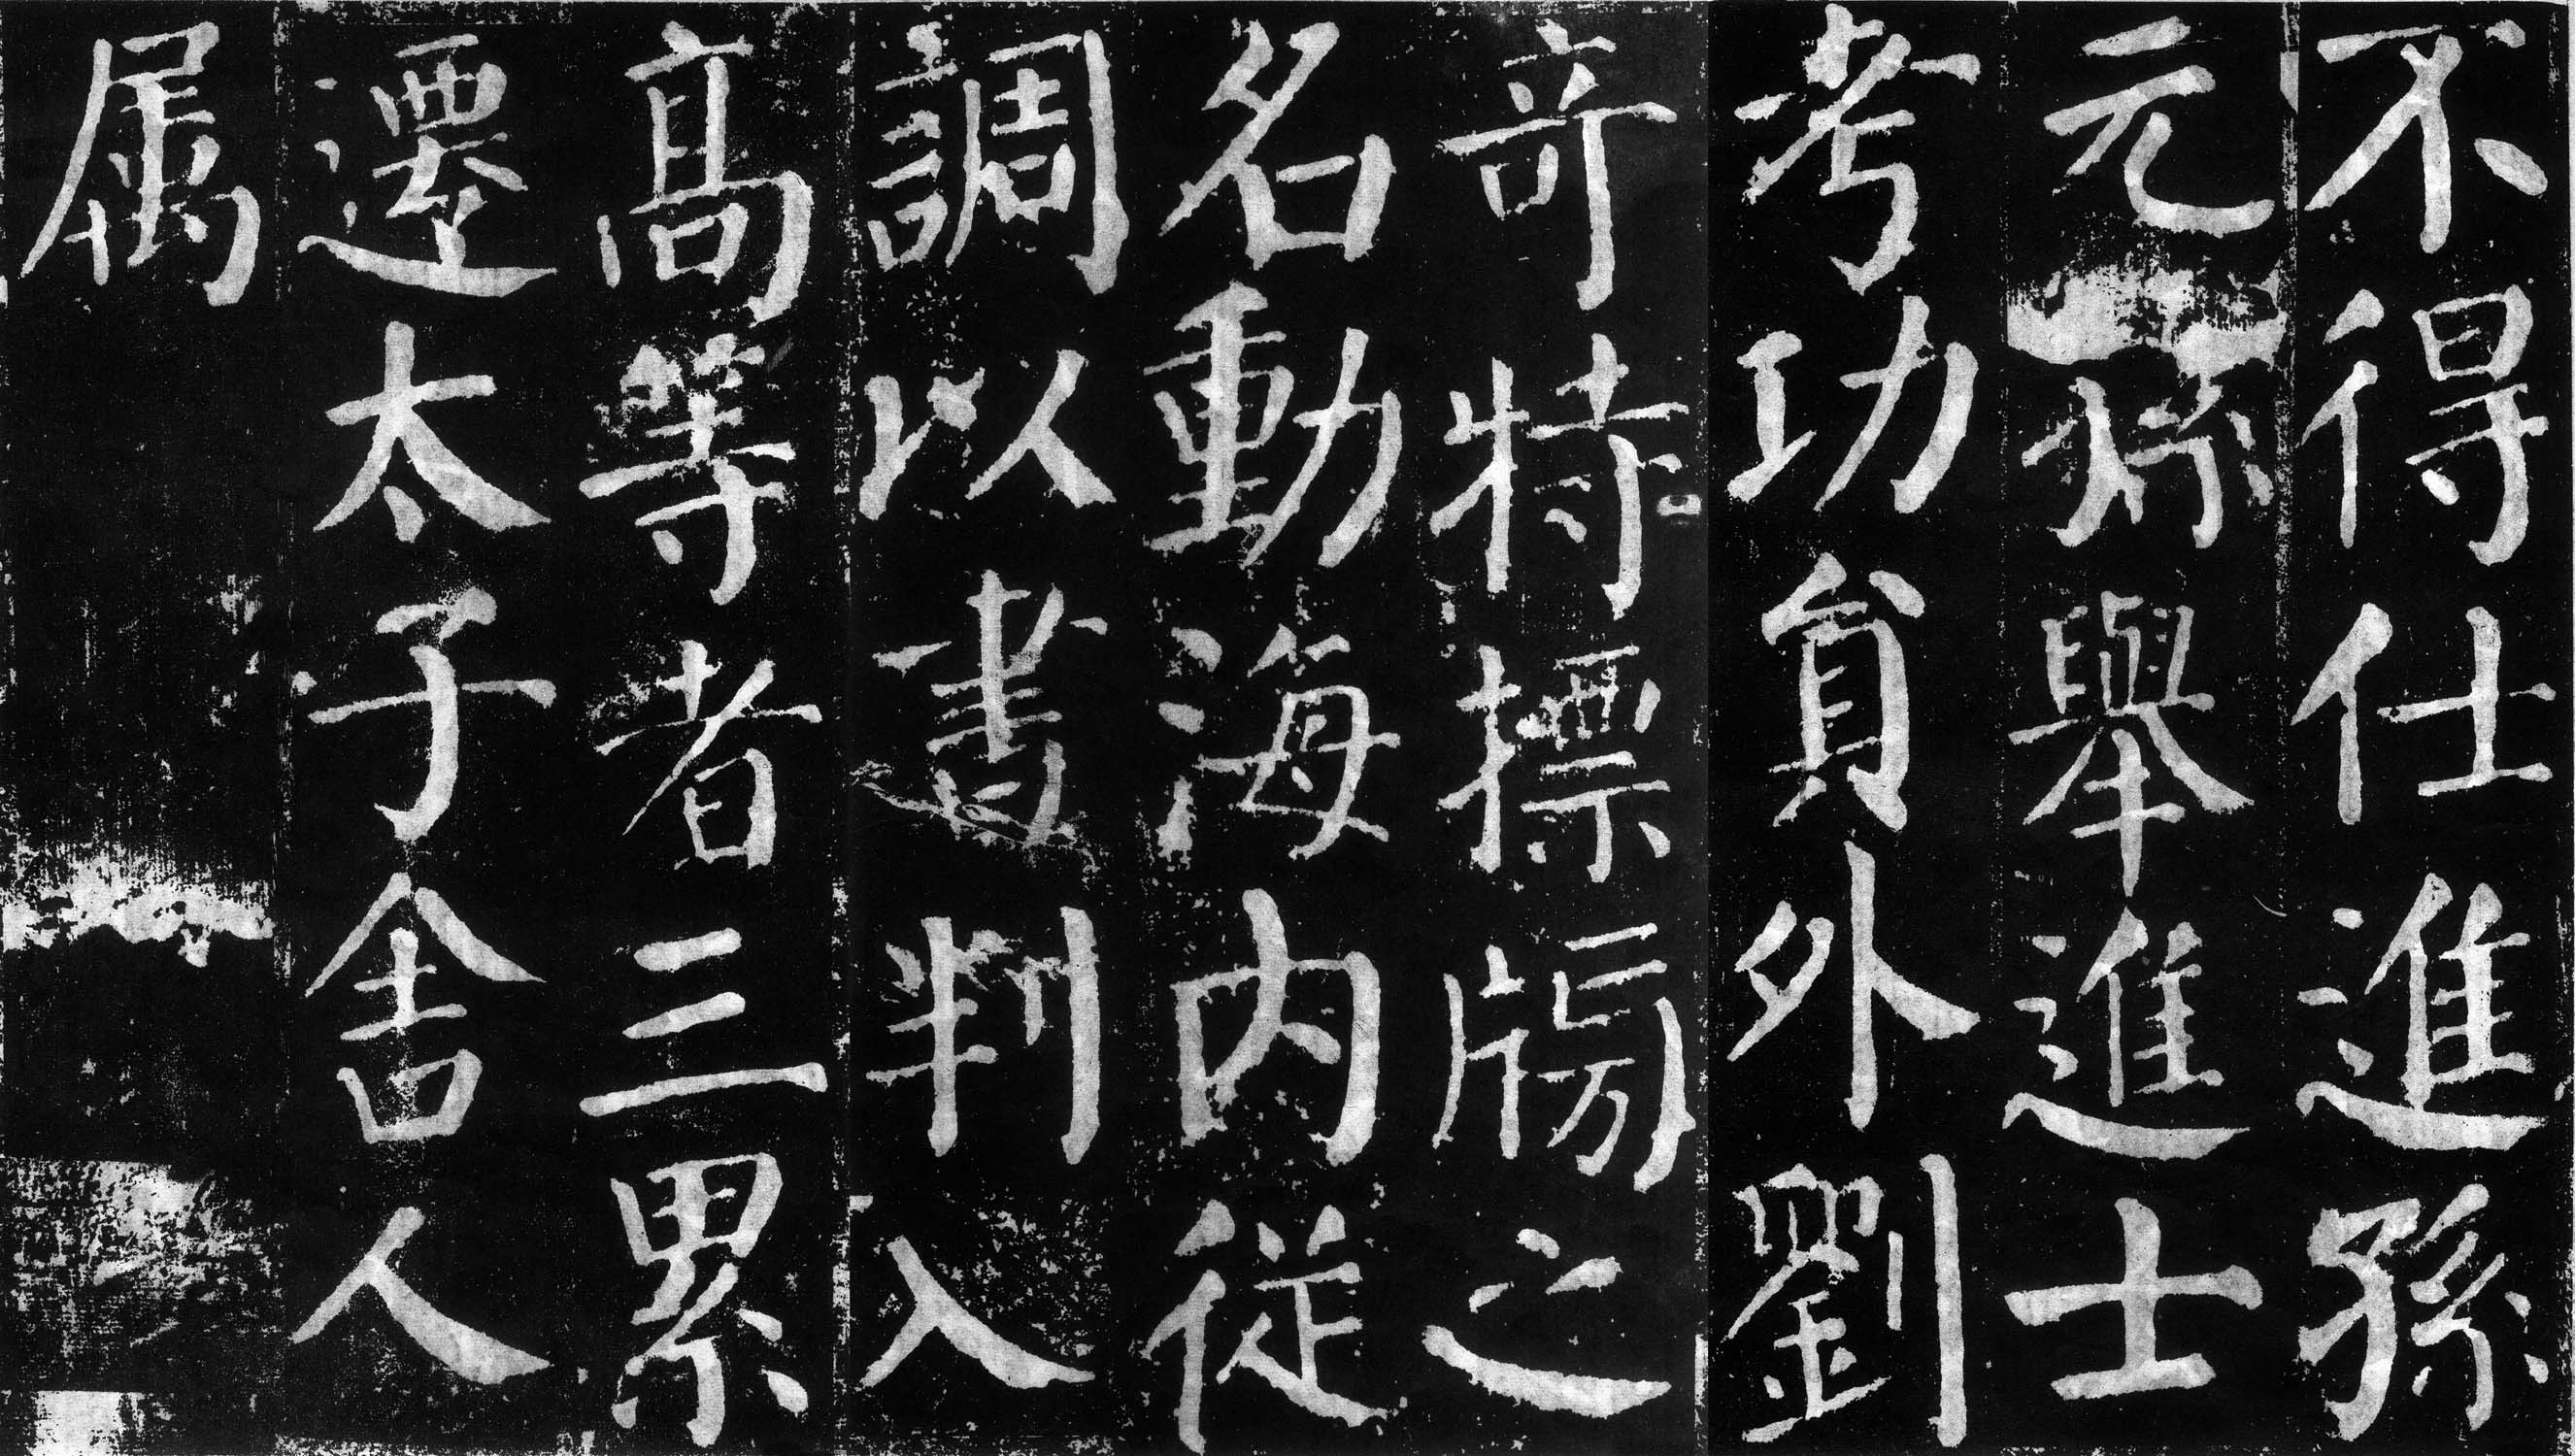 不得仕進孫
元孫舉進士
考功貟外劉
竒特摽牓之
名動海内從
調以書判入
髙等者三累
遷太子舍人
属